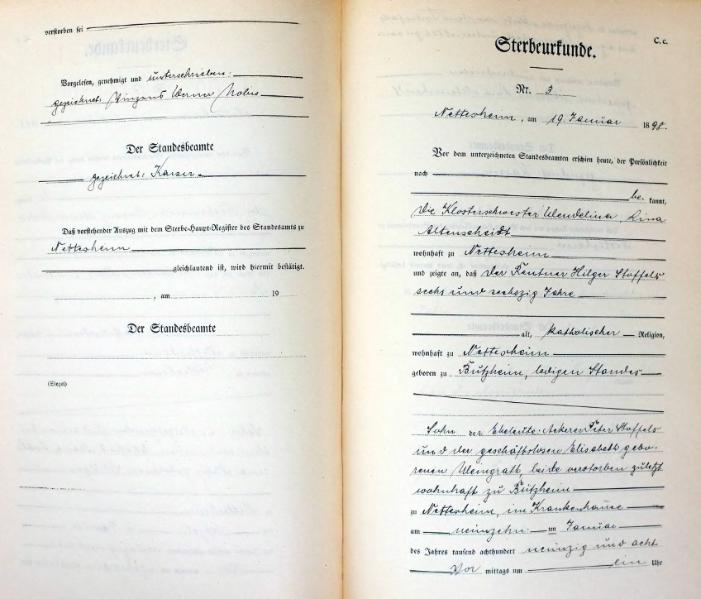 verstorben sei
Vorgelesen, genehmigt und unterschrieben:
gezeichnet: Werner
Der Standesbeamte
gezeichnet: Kaiser
Daß vorstehender Auszug mit dem Sterbe-Haupt-Register des Standesamts zu
Nettesheim
gleichlautend ist, wird hiermit bestätigt.
, am 19
Der Standesbeamte
(Siegel)
C. c.
Sterbeurkunde.
Nr. 3
Nettesheim, am 19. Januar 1898.
Vor dem unterzeichneten Standesbeamten erschien heute, der Persönlichkeit
nach
be kannt,
die Klosterschwester Wendelina, Lina
Altenscheidt
wohnhaft zu Nettesheim
und zeigte an, daß der Rentner Hilger Stoffels
sechs und sechszig Jahre
alt, katholischer Religion,
wohnhaft zu Nettesheim
geboren zu Bützheim, ledigen Standes
Sohn der Eheleute Ackerer Peter Stoffels
und der geschäftslosen Elisabeth gebo-
renen beide verstorben zuletzt
wohnhaft zu Bützheim
zu Nettesheim, im Krankenhause
am neunzehn ten Januar
des Jahres tausend achthundert neunzig und acht
Vor mittags um ein Uhr